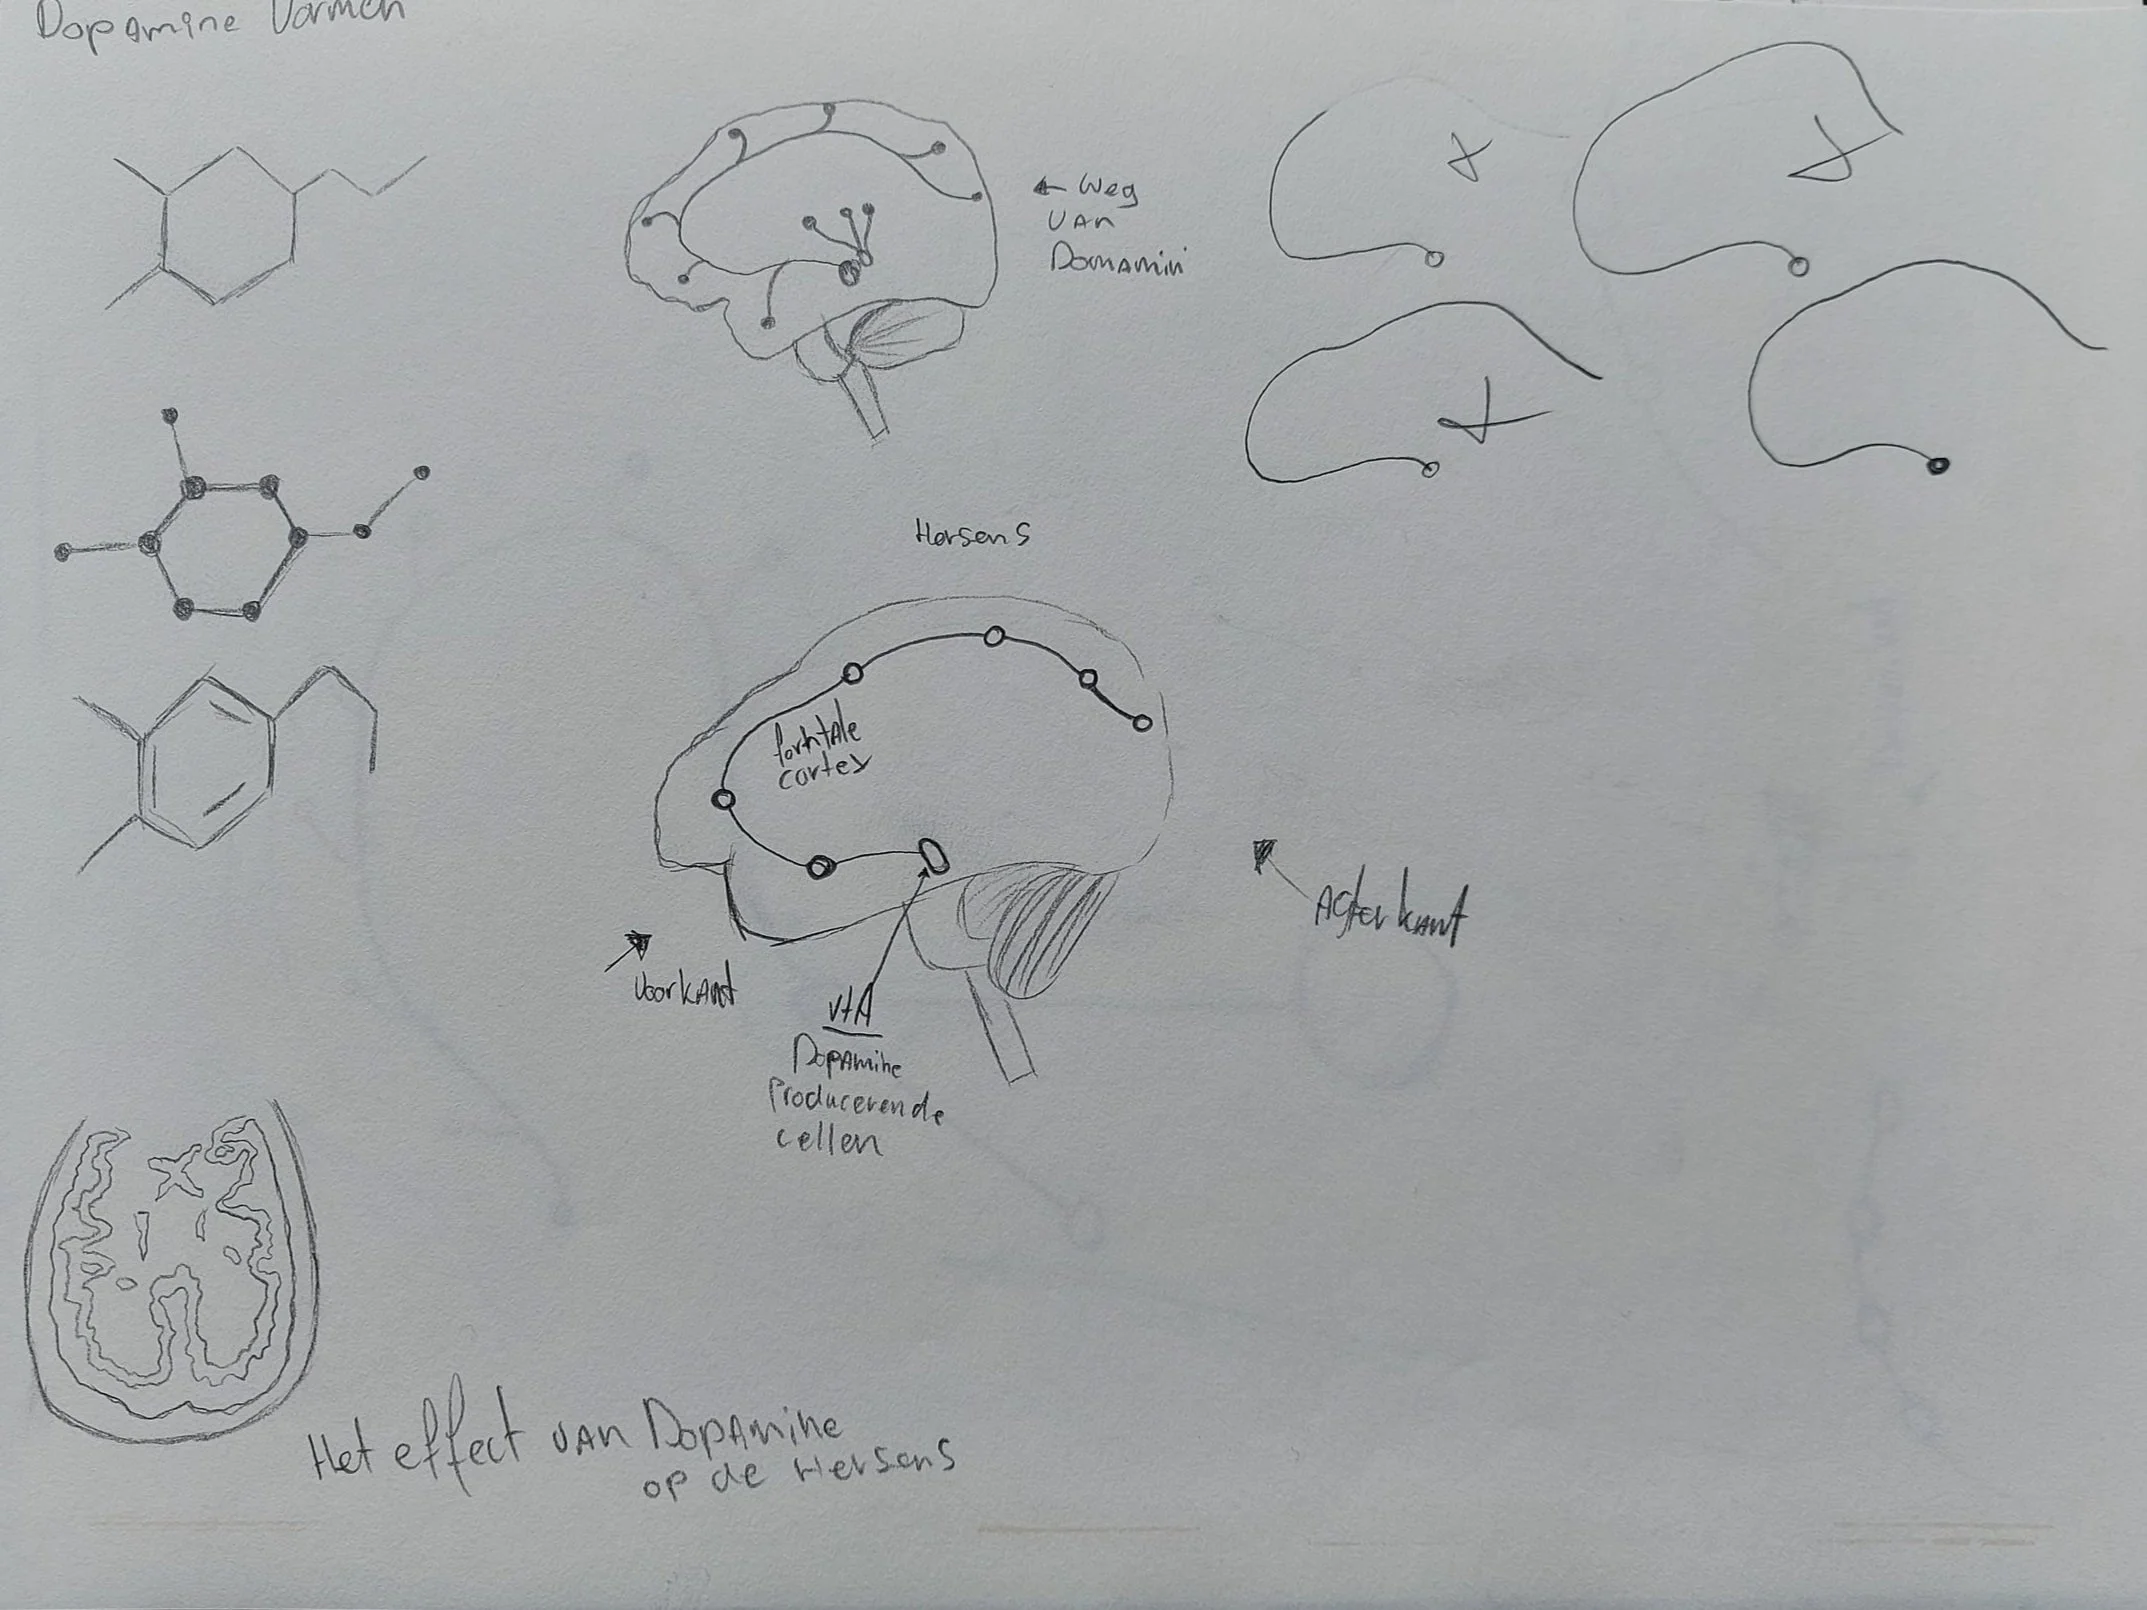 Dopamine Vormen
← Weg
van
Domamin
Hersens
forntale
cortex
Agterkant
Voorkant
VtA
Dopamine
Producerende
cellen
Het effect van Dopamine
op de Hersens